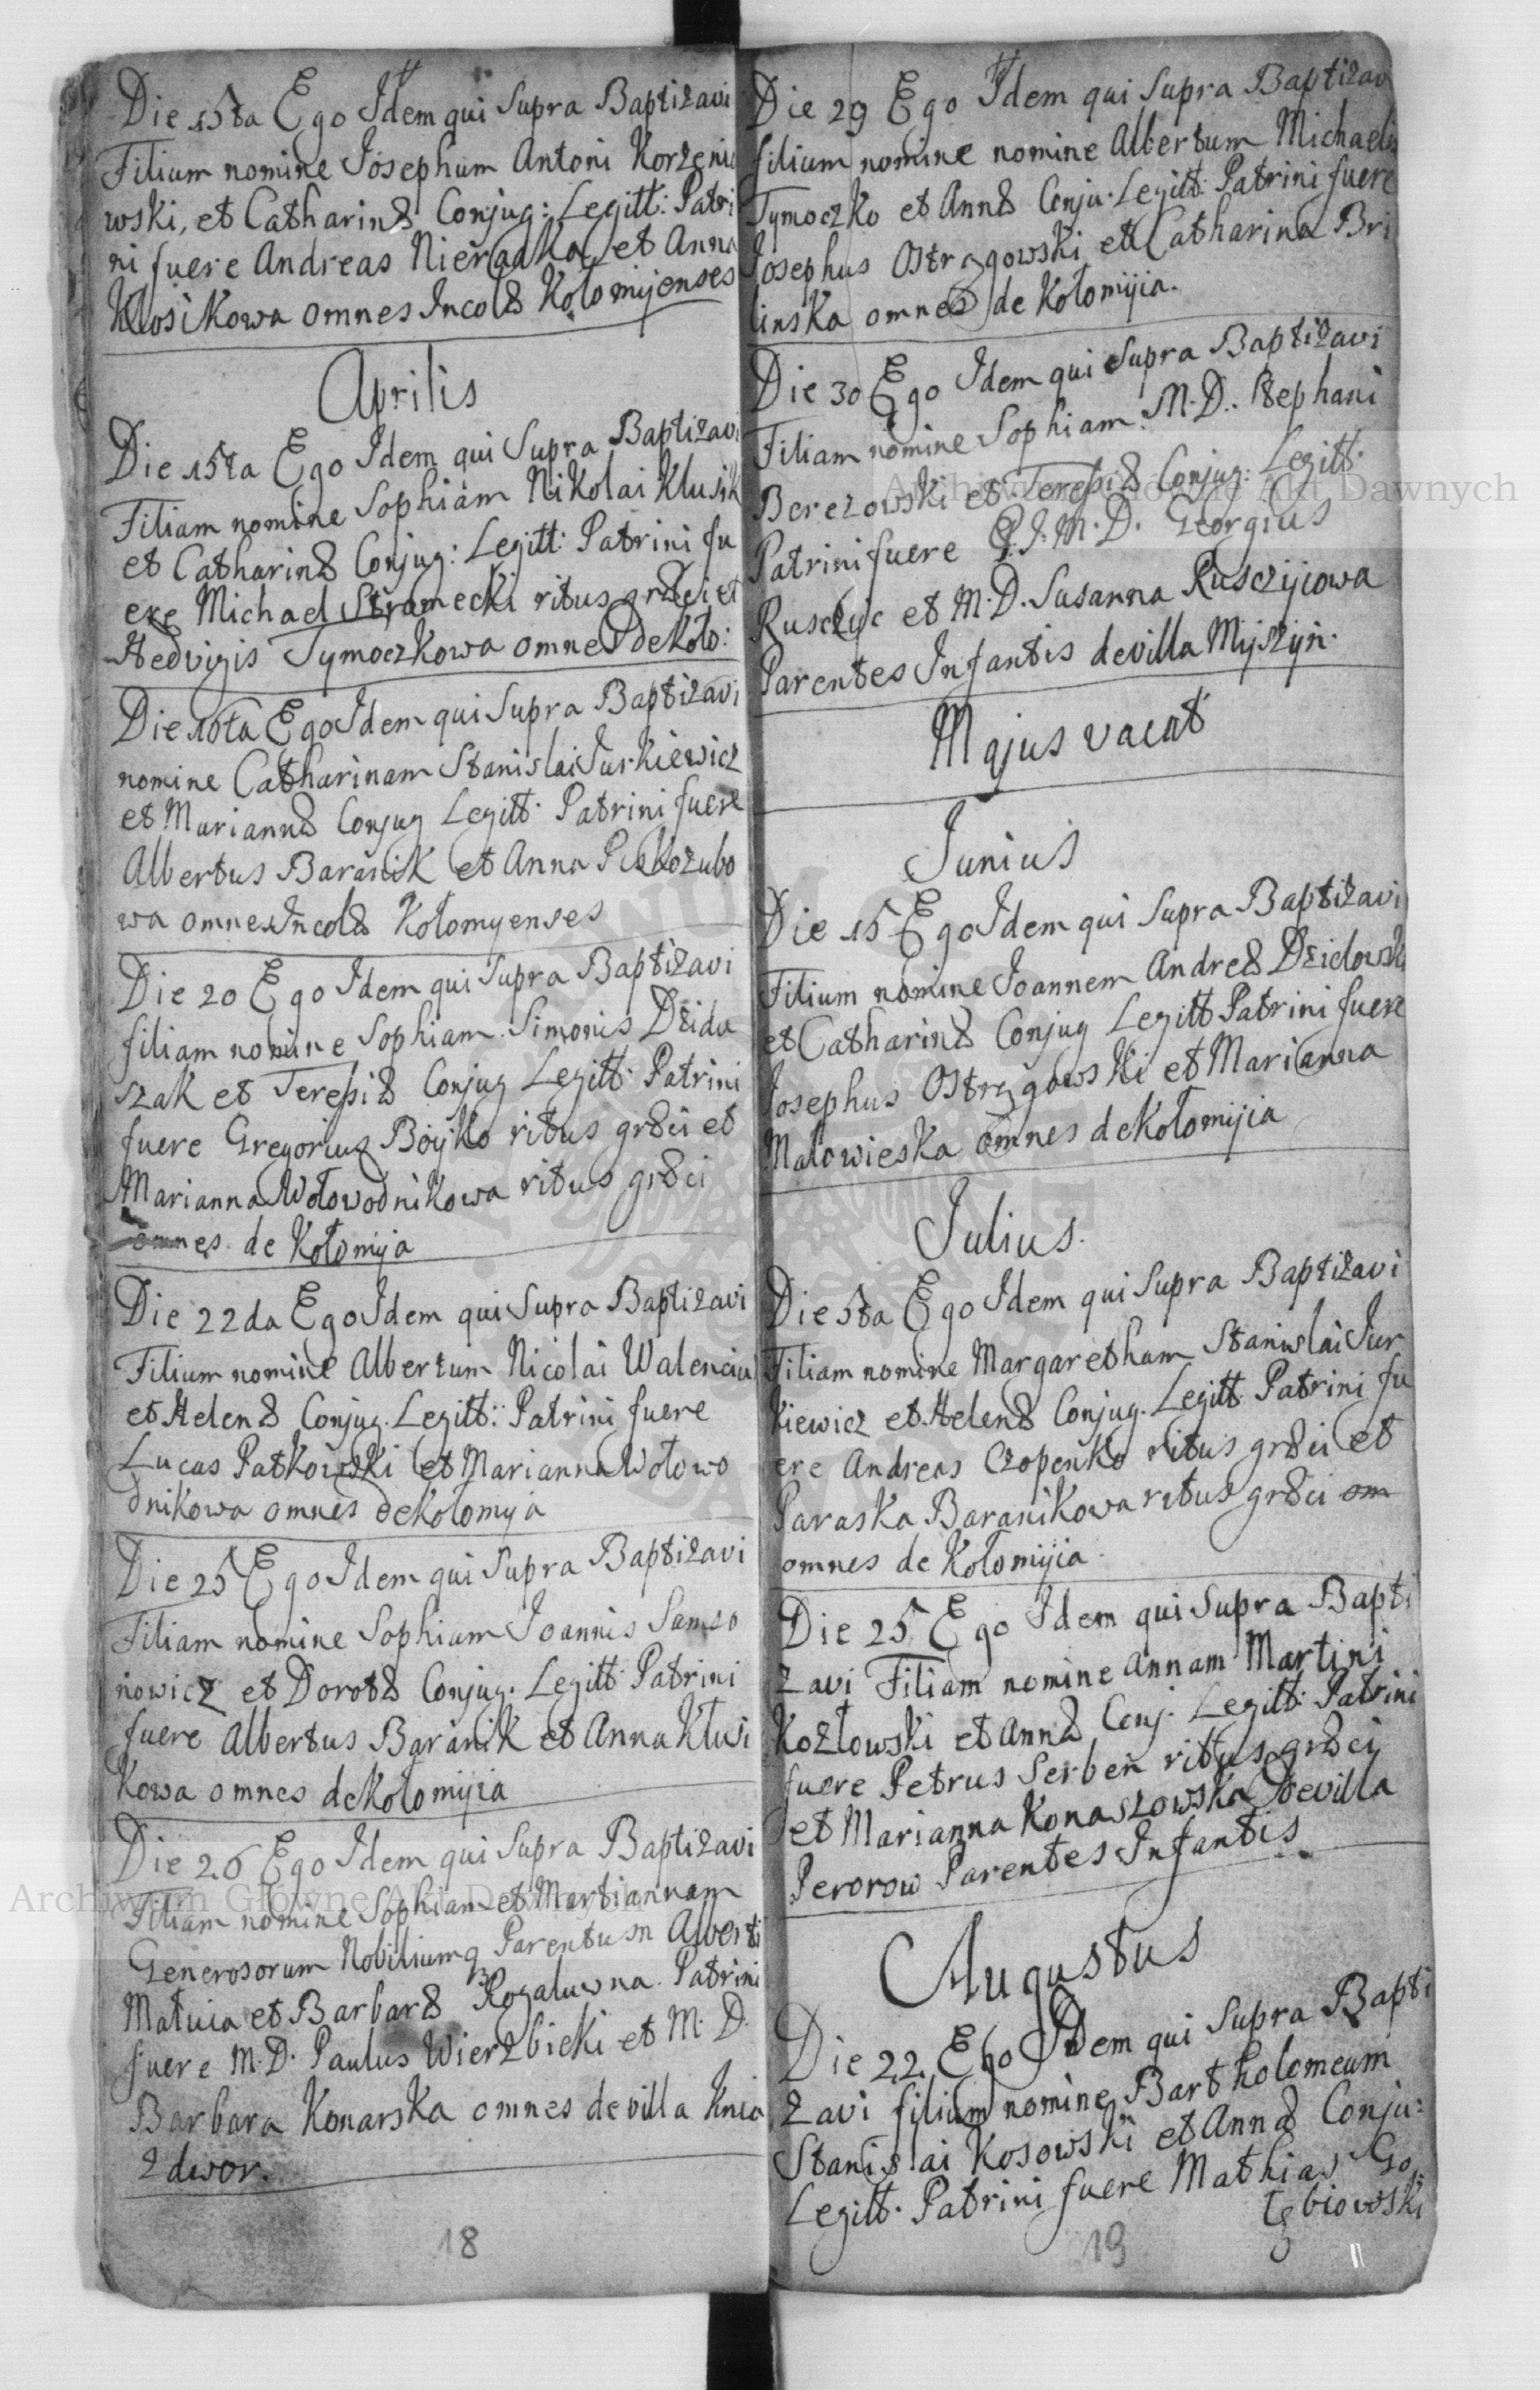 Die 15ta Ego Idem qui Supra Baptizavi
Filium nomine Josephum Antoni Korzenio
wski, et Catharinæ Conjug: Legitt: Patri
ni fuere Andreas Nieradka et Anna
Klosikowa omnes Incolæ Kołomyjenses
Aprilis
Die 15ta Ego Idem qui Supra Baptizavi
Filiam nomine Sophiam Nikolai Klusik
et Catharinæ Conjug: Legitt: Patrini fu
ere Michael Stramecki ritus græci et
Hedvigis Tymoczkowa omnes de Koło:
Die 16ta Ego Idem qui Supra Baptizavi
nomine Catharinam Stanislai Jurkiewicz
et Mariannæ Conjug Legitt: Patrini fuere
Albertus Baranik et Anna Piskozubo
wa omnes Incolæ Kołomyenses
Die 20 Ego Idem qui Supra Baptizavi
filiam nomine Sophiam Simonis Dzidu
szak et Teresiæ Conjug Legitt: Patrini
fuere Gregorius Boyko ritus græci et
Marianna Wołowodnikowa ritus græci
omnes de Kołomyja
Die 22da Ego Idem qui Supra Baptizavi
Filium nomine Albertum Nicolai Walenciu
et Helenæ Conjug. Legitt: Patrini fuere
Lucas Patkowski et Marianna Wołowo
dnikowa omnes de Kołomyja
Die 25 Ego Idem qui Supra Baptizavi
Filiam nomine Sophiam Joannis Samso
nowicz et Dorotæ Conjug. Legitt: Patrini
fuere Albertus Baranik et Anna Klusi
kowa omnes de Kołomyjia
Die 26 Ego Idem qui Supra Baptizavi
Filiam nomine Sophiam et Martiannam
Generosorum Nobiliumq Parentum Alberti
Matuia et Barbaræ Rogaluwna. Patrini
fuere M. D. Paulus Wierzbicki et M. D.
Barbara Konarska omnes de villa Knia
zdwor.
18
Die 29 Ego Idem qui Supra Baptizavi
filium nomine nomine Albertum Michaelis
Tymoczko et Annæ Conju. Legitt: Patrini fuere
Josephus Ostrzgowski et Catharina Bri
linska omnes de Kołomyjia.
Die 30 Ego Idem qui Supra Baptizavi
Filiam nomine Sophiam. M. D. Stephani
Berezowski et Teresiæ Conjug: Legitt.
Patrini fuere P. J. M. D. Georgius
Rusczyc et M. D. Susanna Rusczyjcowa
Parentes Infantis de villa Myszyn.
Majus vacat
Junius
Die 15 Ego Idem qui Supra Baptizavi
Filium nomine Joannem Andreæ Dzidowski
et Catharinæ Conjug Legitt Patrini fuere
Josephus Ostrzgowski et Marianna
Małowieska omnes de Kołomyjia
Julius.
Die 5ta Ego Idem qui Supra Baptizavi
Filiam nomine Margaretham Stanislai Jur
kiewicz et Helenæ Conjug. Legitt Patrini fu
ere Andreas Czopenko ritus græci et
Paraska Baranikowa ritus græci om
omnes de Kołomyjia
Die 25 Ego Idem qui Supra Bapti
zavi Filiam nomine Annam Martini
Kozłowski et Annæ Conj. Legitt: Patrini
fuere Petrus Serben ritus græci
et Marianna Konaszowska de villa
Perorow Parentes Infantis
Augustus
Die 22. Ego Idem qui Supra Bapti
zavi filium nomine Bartholomeum
Stanislai Kosowski et Annæ Conju:
Legitt. Patrini fuere Mathias Go
łębiowski
19
Archiwum Główne Akt Dawnych
Archiwum Główne Akt Dawnych